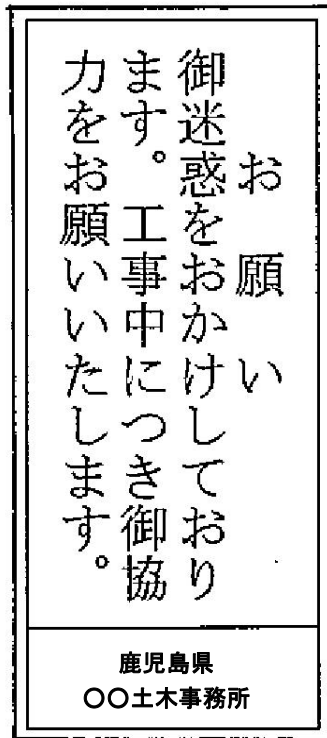 お願い
御迷惑をおかけしており
ます。工事中につき御協
力をお願いいたします。
鹿児島県
○○土木事務所